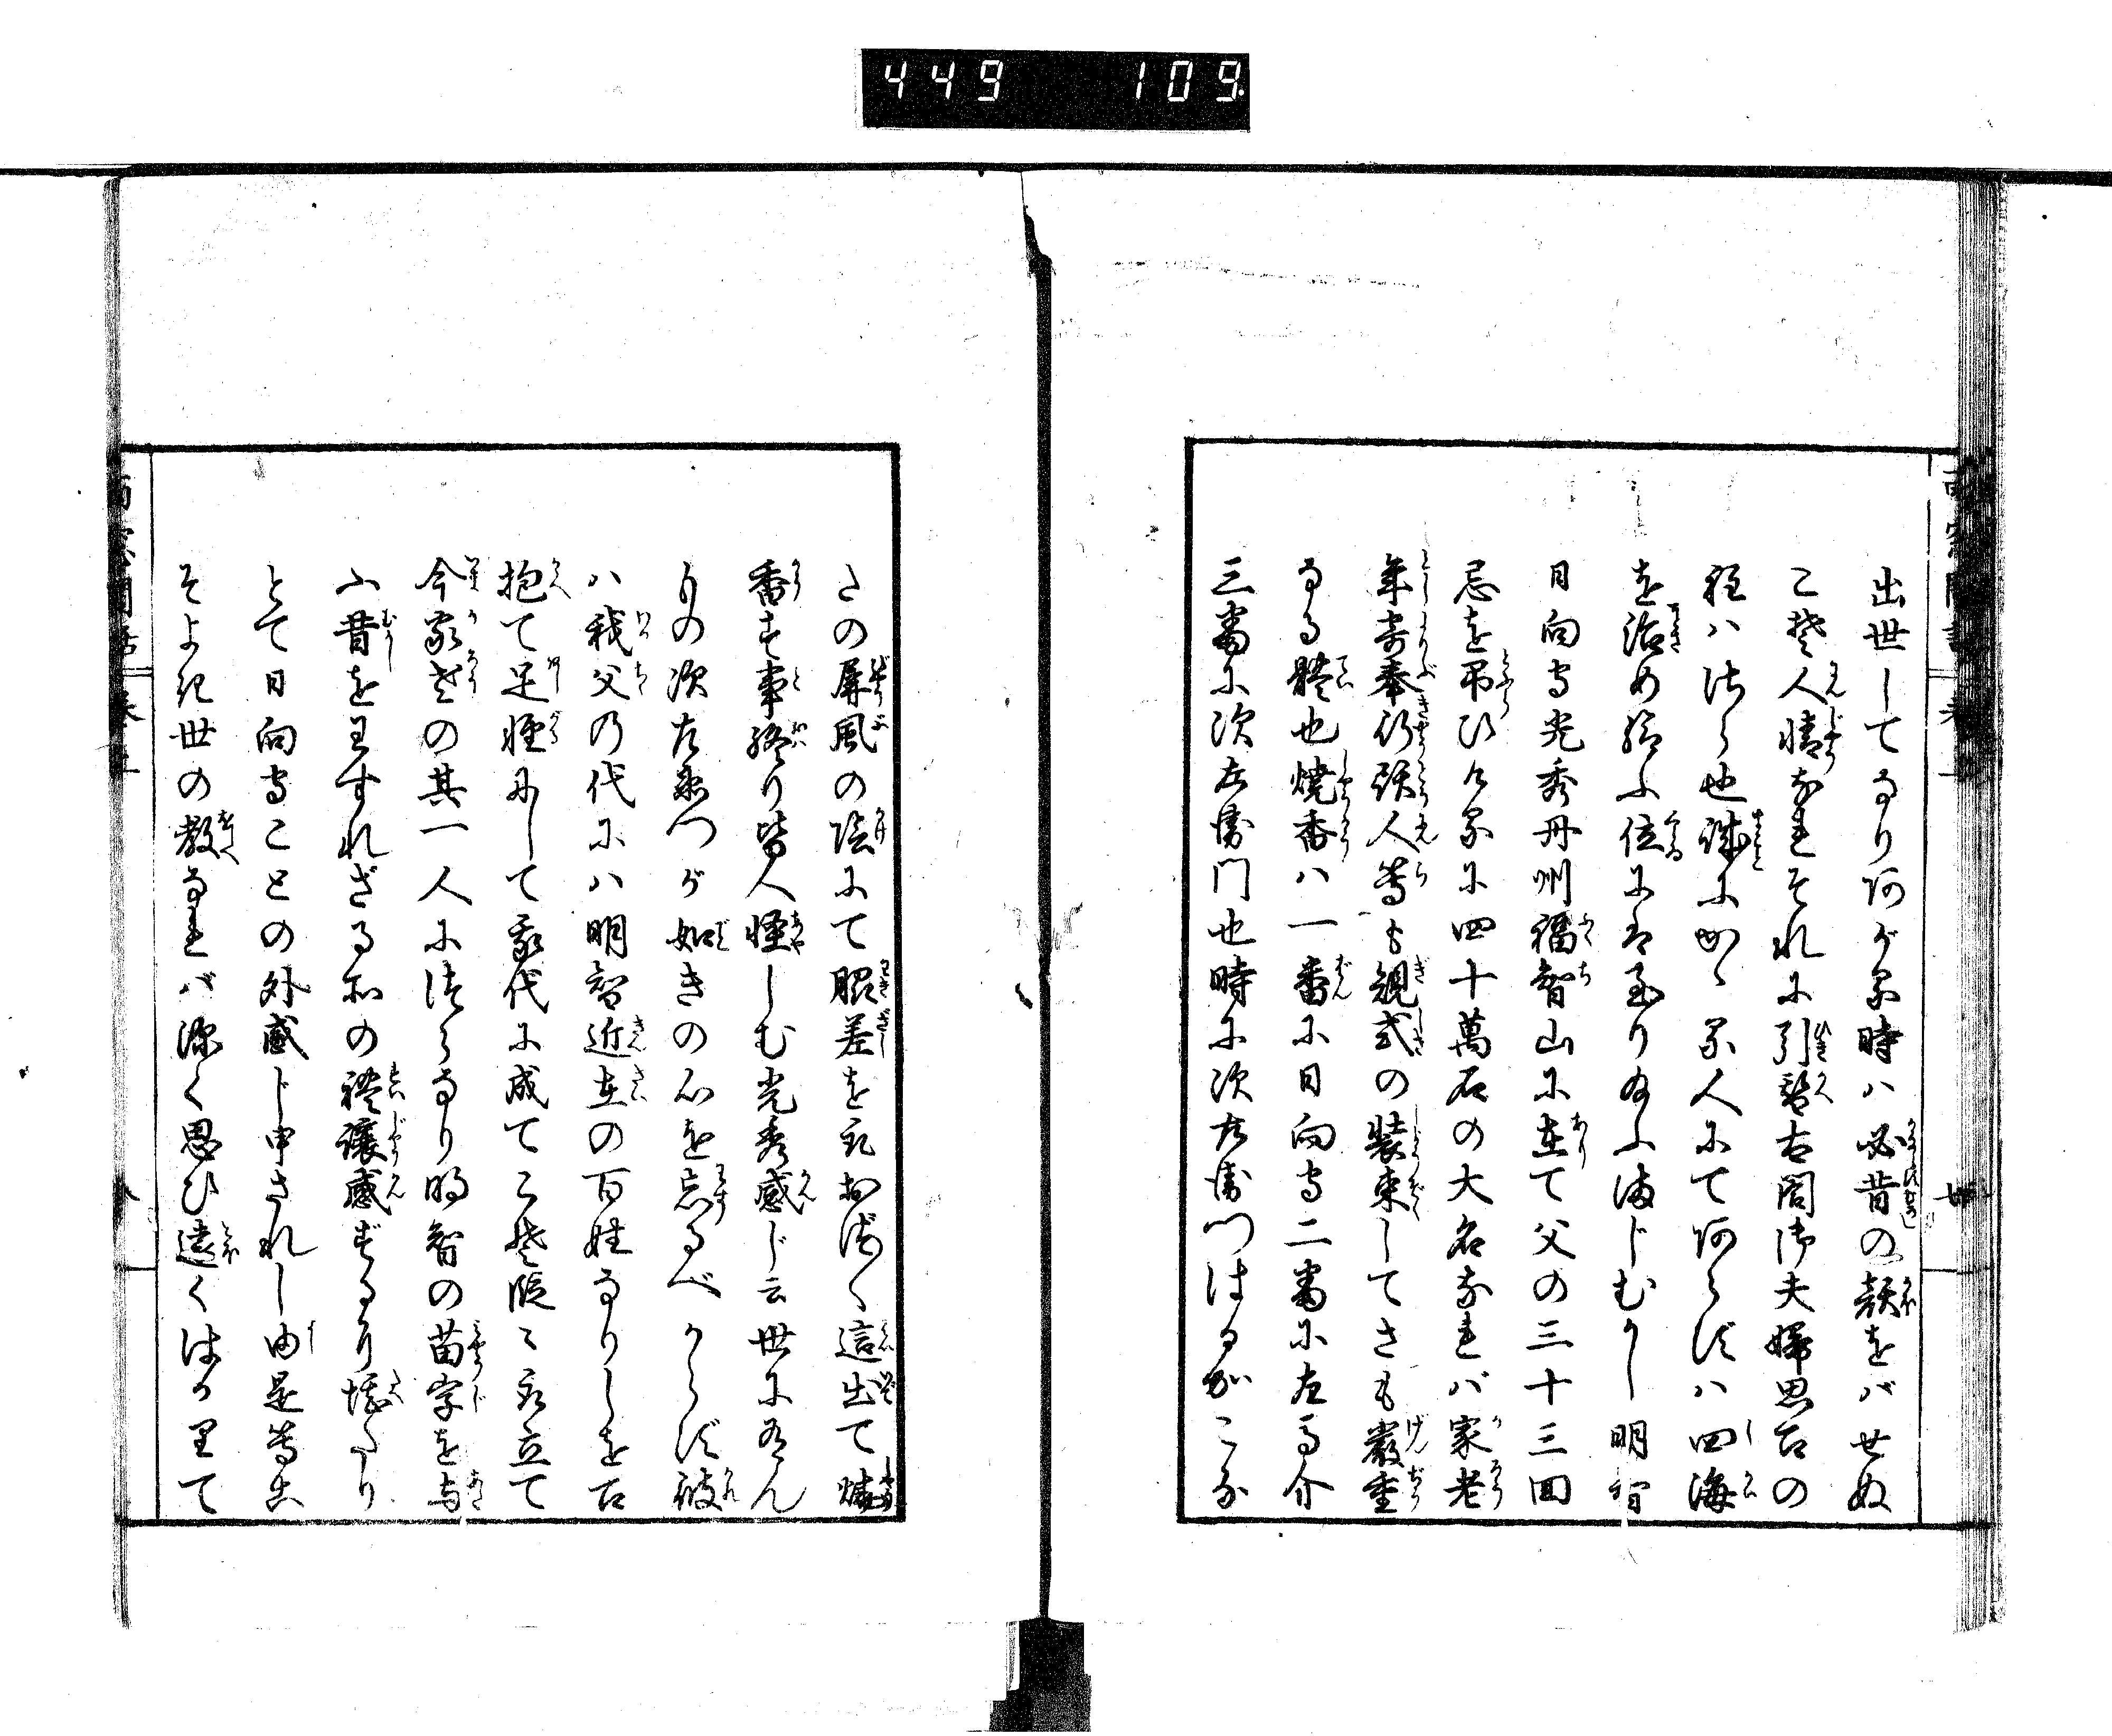 449 109
出世してなり阿がる時ハ必昔の顔をバせぬ
こそ人情なれそれに引替太閤御夫婦思召の
程ハ侍る也誠にかゝる人にて阿らずハ四海
を治め給ふ位には至り給ふまじむかし明智
日向守光秀丹州福智山に在て父の三十三回
忌を弔ひける に四十萬石の大名なれバ家老
年寄奉行頭人等も規式の装束してさも嚴重
なる體也燒香ハ一番に日向守二番に左馬介
三番に次左衛門也時に次右衛門はるかこな
たの屏風の陰にて脇差を 這出て燒
香す事終り皆人怪しむ光秀感じ云世に有ん
もの次右衛門が如きの心を忘るべからず彼
ハ我父の代にハ明智近在の百姓なりしを召
抱て足輕にして我代に成てこそ段々取立て
今家老の其一人に侍るなり明智の苗字を与
ふ昔をわすれざる所の禮讓感ずるに堪たり
とて日向守ことの外感じ申されし由是等こ
そよき世の教なれバ深く思ひ遠くはかりて